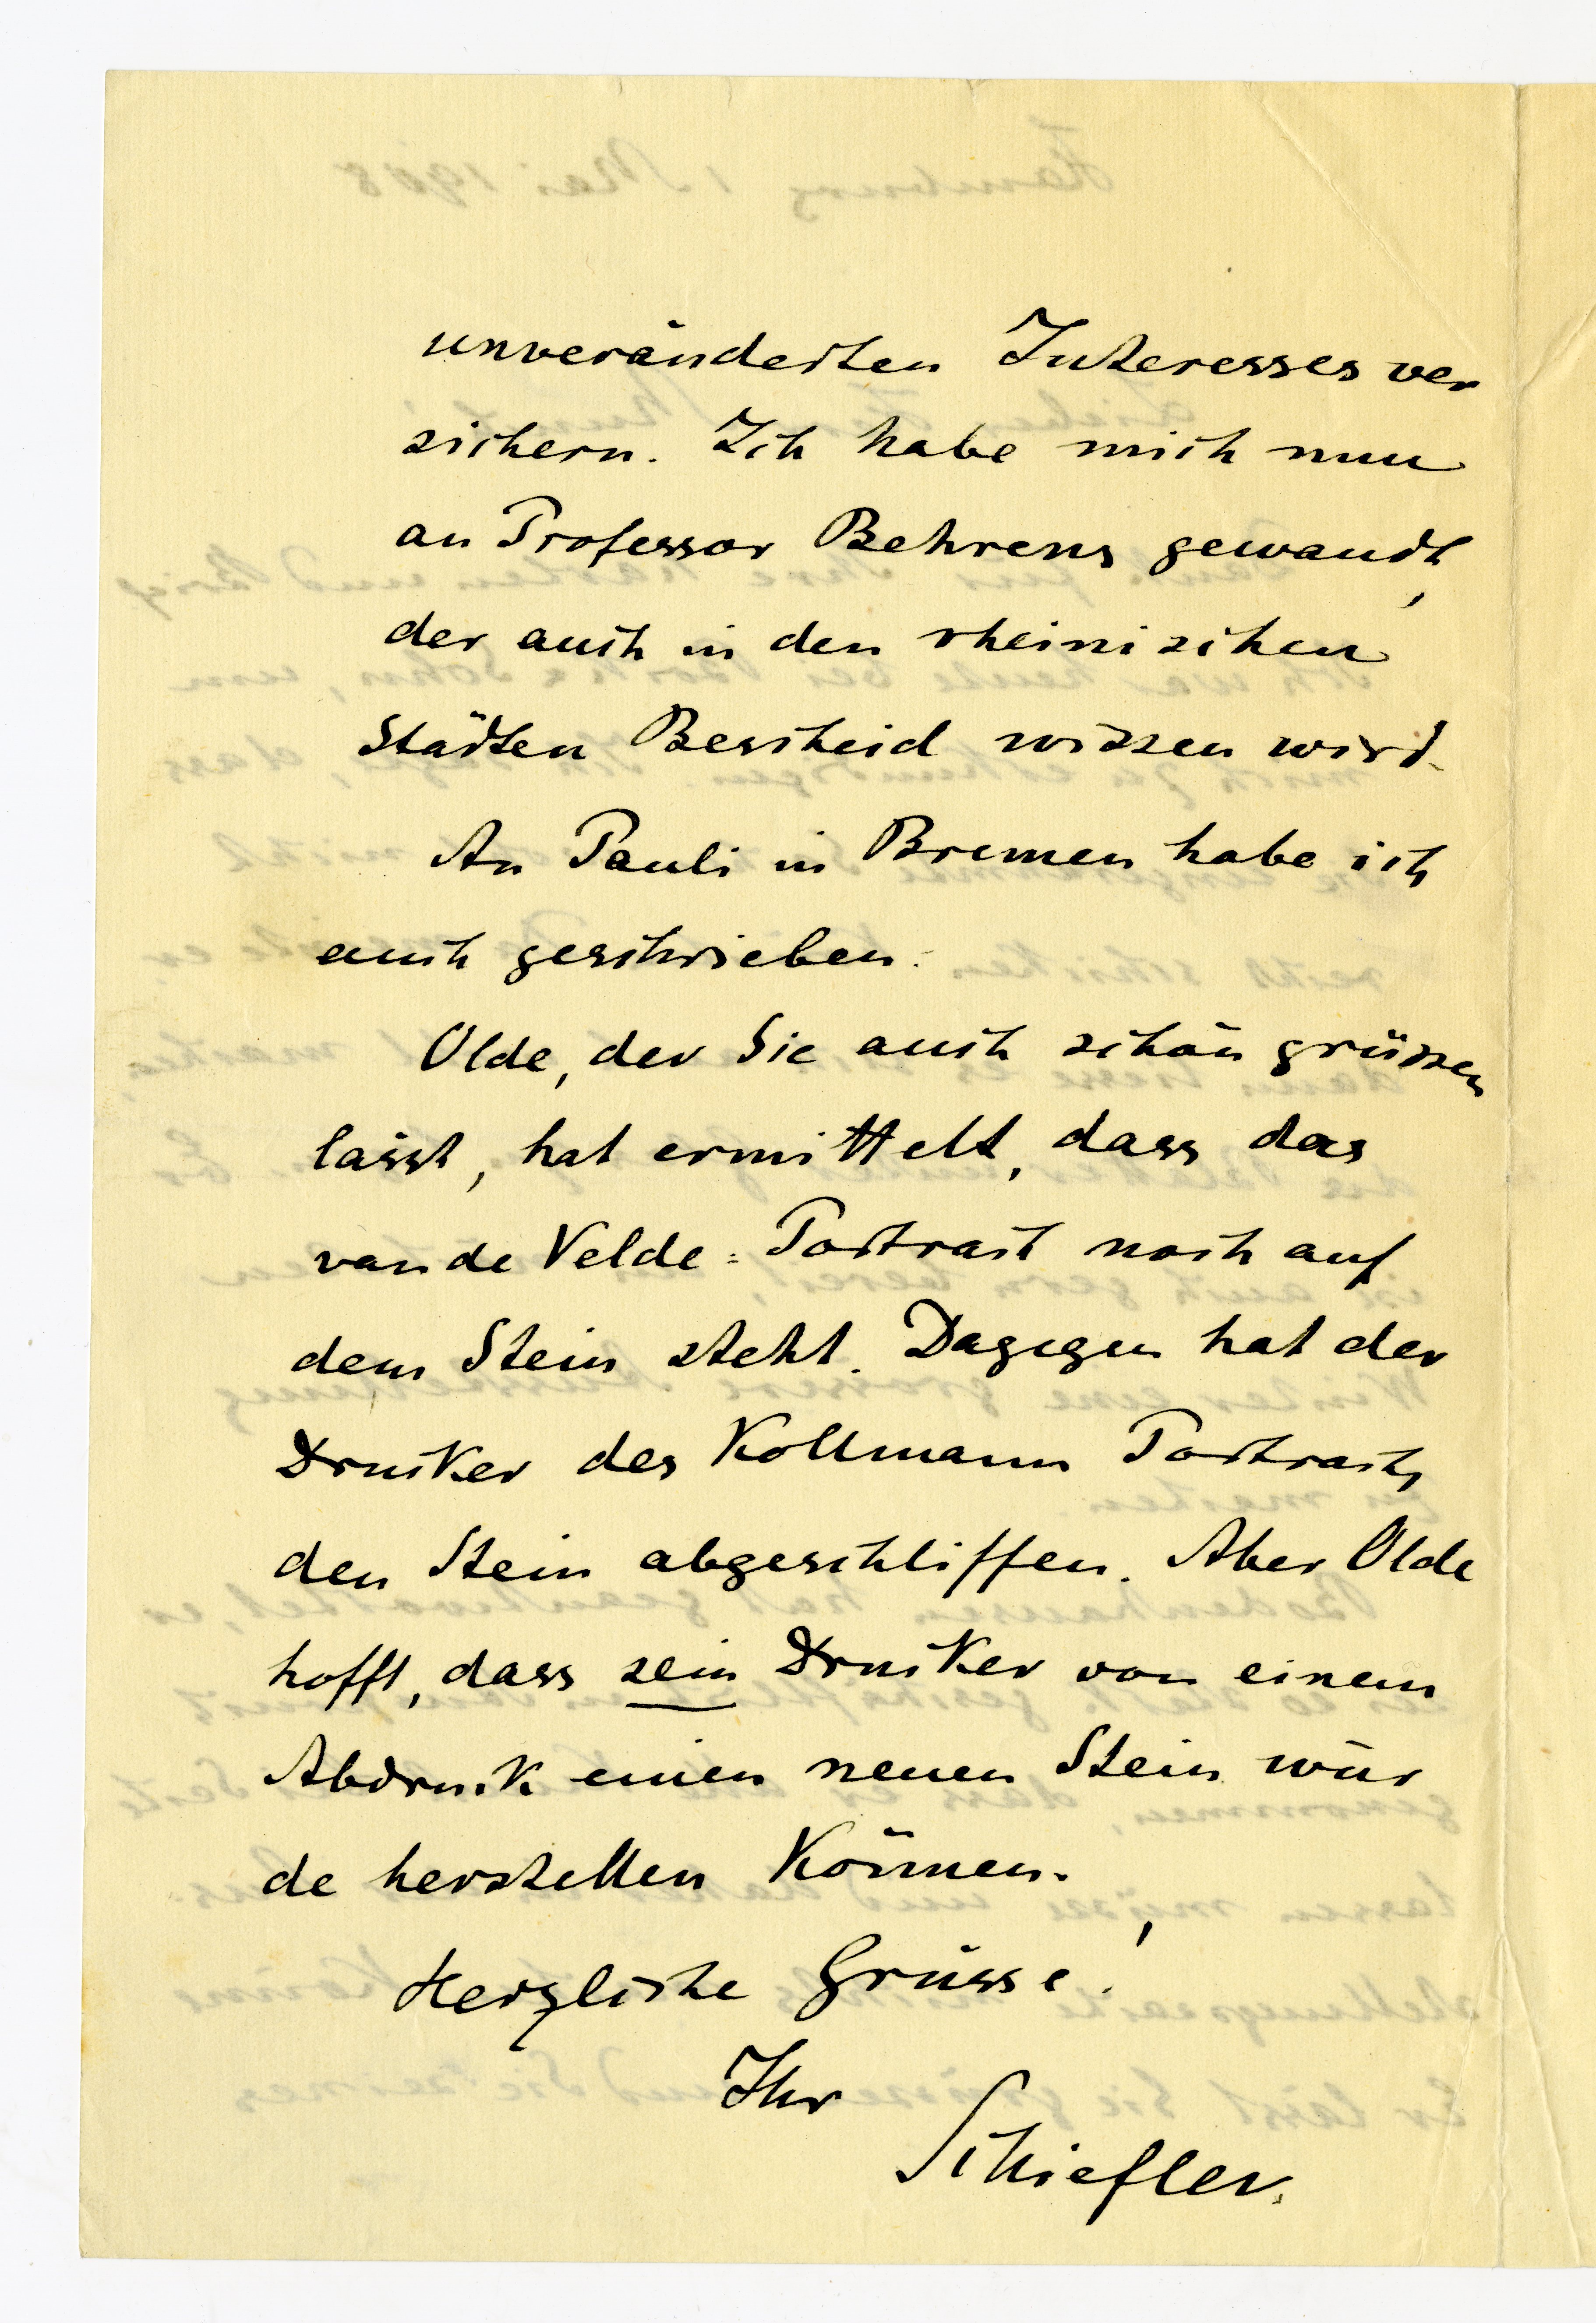 unveränderten Interesses ver
sichern. Ich habe mich nun
an Professor Behrens gewandt,
der auch in den rheinischen
Städten Bescheid wissen wird.
An Pauli in Bremen habe ich
auch geschrieben.
Olde, der Sie auch schön grüssen
lässt, hat ermittelt, dass das
van de Velde = Portrait noch auf
dem Stein steht. Dagegen hat der
Drucker des Kollmann Portraits
den Stein abgeschliffen. Aber Olde
hofft, dass sein Drucker von einem
Abdruck einen neuen Stein wür
de herstellen können.
Herzliche Grüsse!
Ihr
Schiefler.